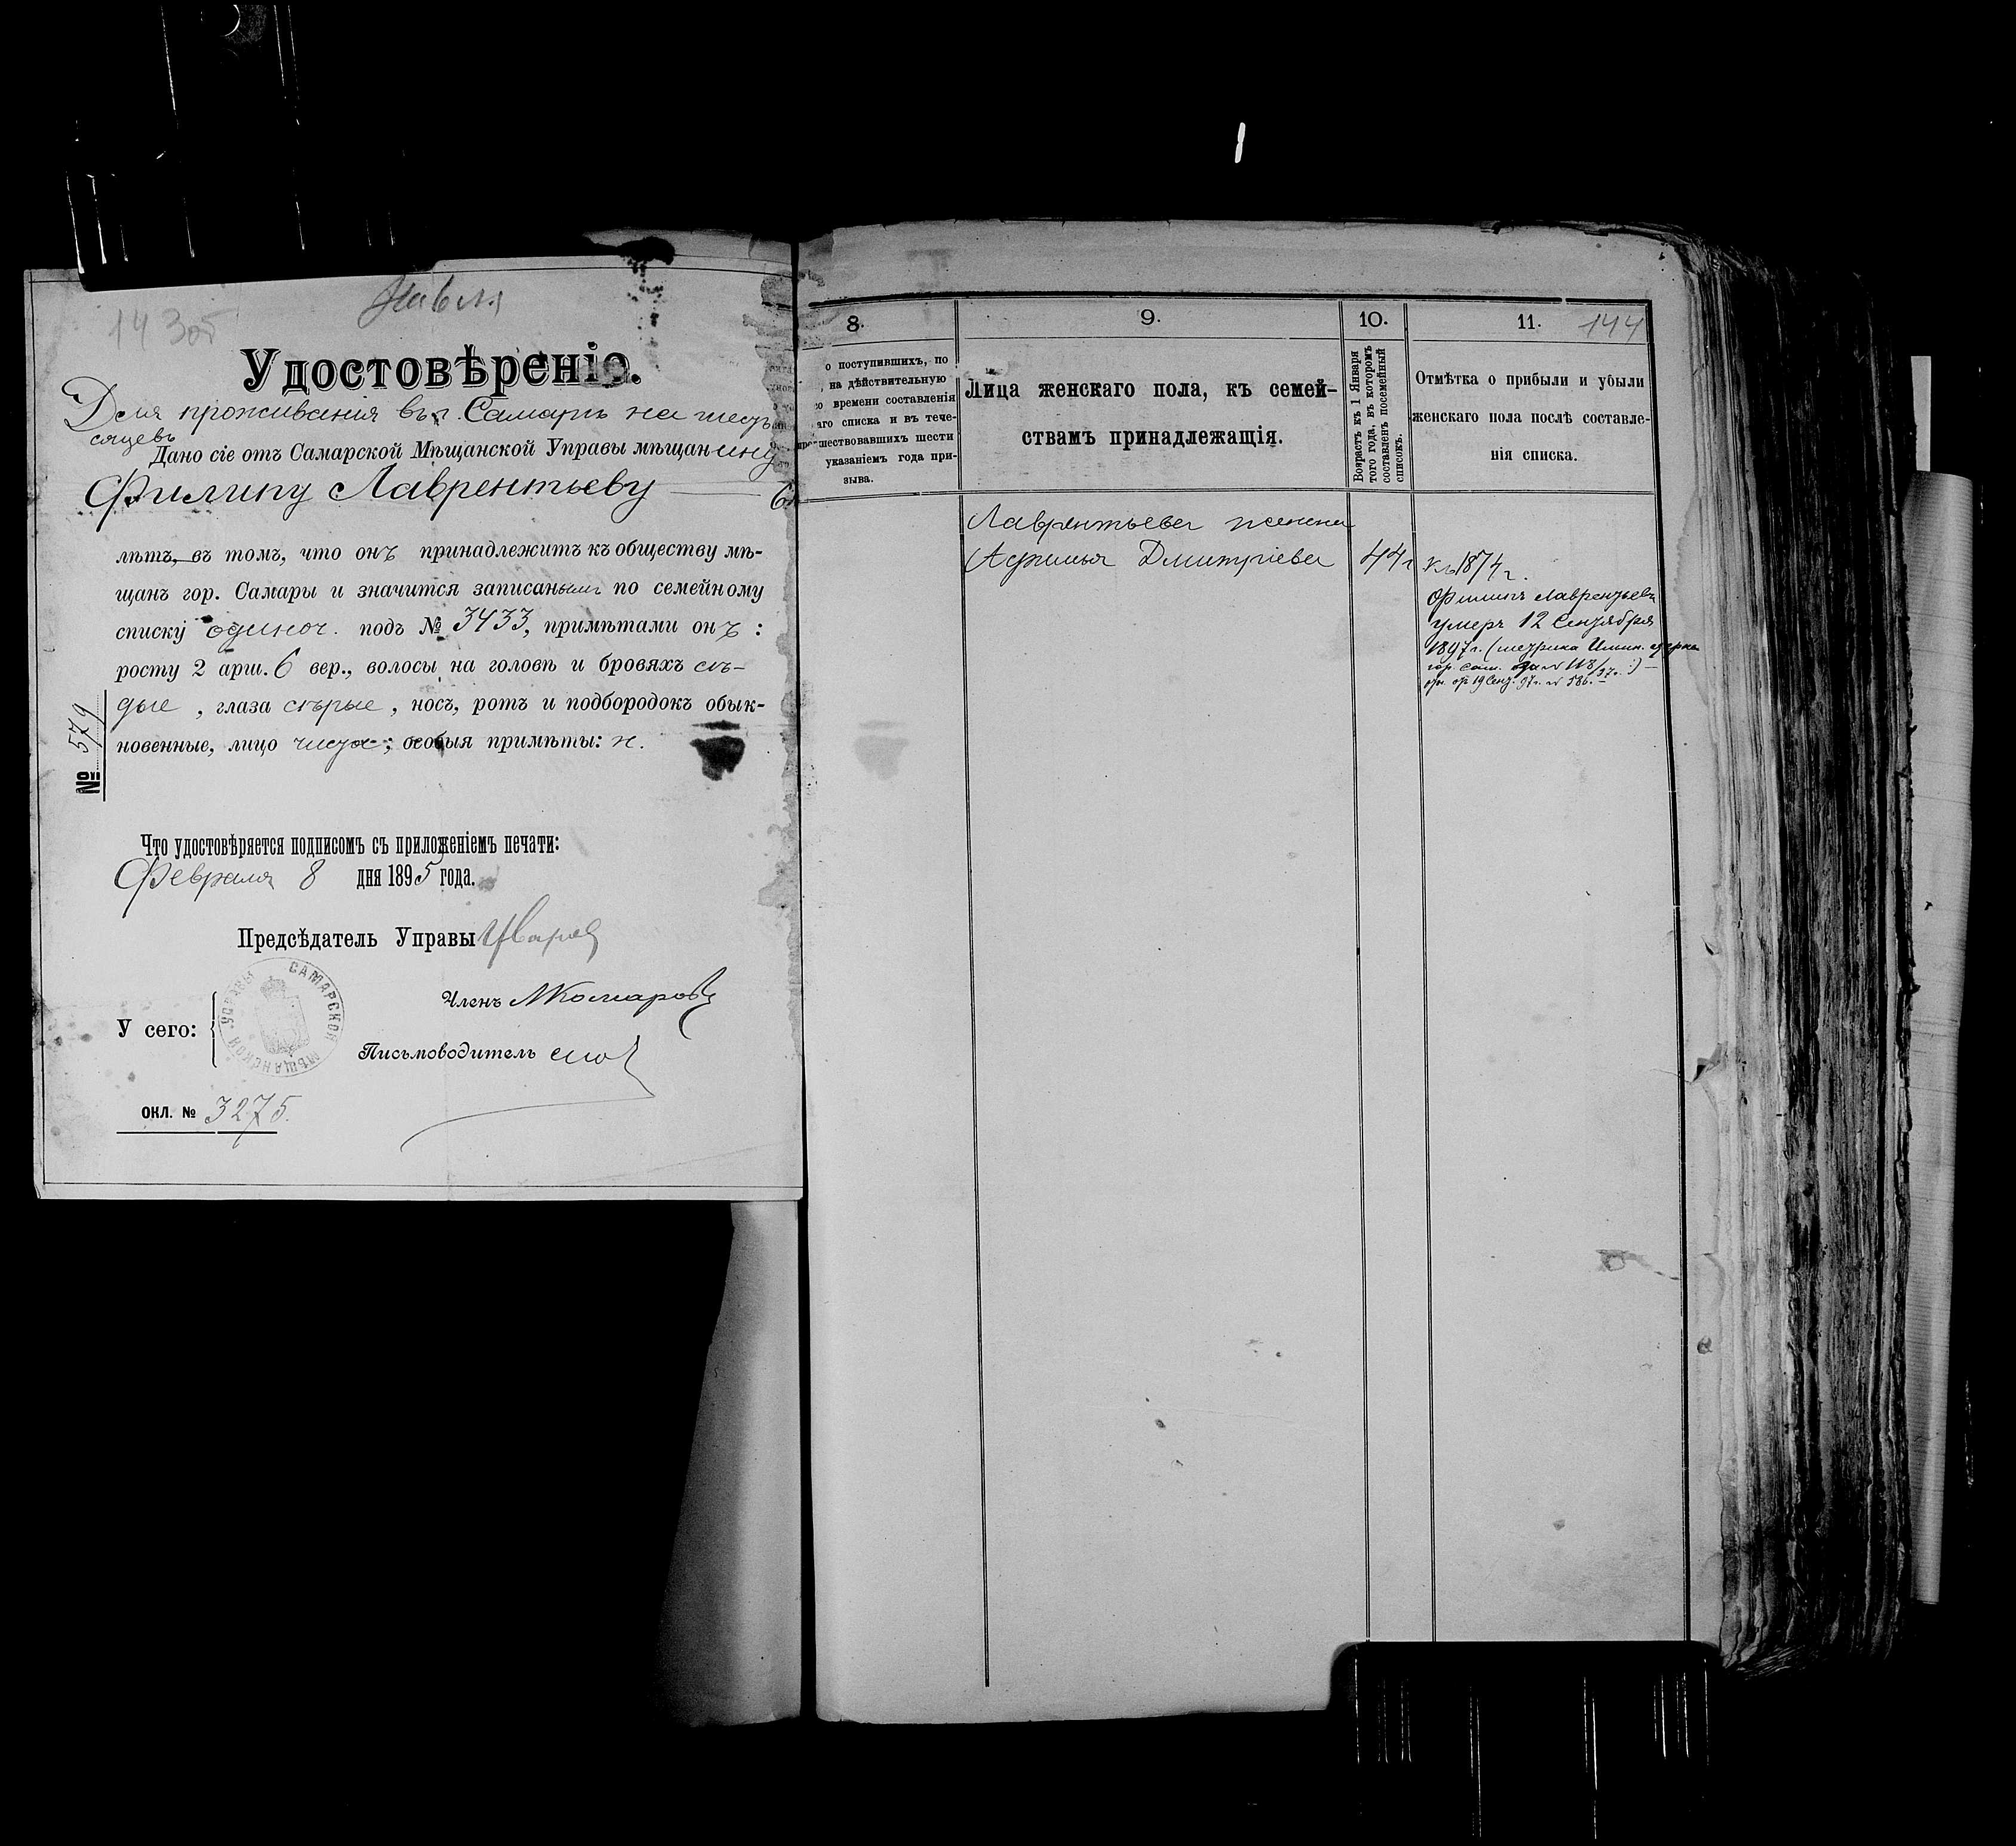 143об
Удостовѣреніе.
Для проживанія въ г. Самарѣ на шесть
сяцевъ
Дано сіе отъ Самарской Мѣщанской Управы мѣщанину
Филипу Лаврентьеву
лѣтъ, въ томъ, что онъ принадлежитъ къ обществу мѣ-
щанъ гор. Самары и значится записаннымъ по семейному
списку одиноч. подъ № 3433, примѣтами онъ:
росту 2 арш. 6 вер., волосы на головѣ и бровяхъ сѣ-
дые, глаза сѣрые, носъ, ротъ и подбородокъ обык-
новенные, лицо чисто; особыя примѣты: н.
№ 579
Что удостовѣряется подписомъ съ приложеніемъ печати:
Февраля 8 дня 1895 года.
Предсѣдатель Управы
Членъ МКомаровъ
У сего:
САМАРСКОЙ МѢЩАНСКОЙ УПРАВЫ
Письмоводитель
ОКЛ. № 3275.
8.
о поступившихъ, по
на дѣйствительную
времени составленія
аго списка и въ тече-
шествовавшихъ шести
указаніемъ года при-
зыва.
9.
Лица женскаго пола, къ семей-
ствамъ принадлежащія.
10.
Возрастъ къ 1 Января
того года, въ которомъ
составленъ посемейный
списокъ.
11. 144
Отмѣтка о прибыли и убыли
женскаго пола послѣ составле-
нія списка.
Лаврентьева жена
Афимья Дмитріева 44 г
къ 1874 г.
Филипъ Лаврентьевъ
умеръ 12 Сентября
1897 г. (метрика Ильин. церкви
гор. Сам. за № 118/97 г.)
от 19 Сент. 97 г. № 586.